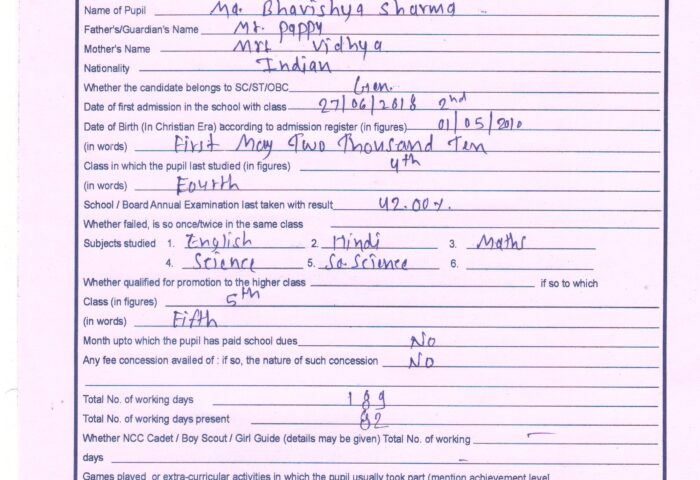 Name of Pupil Ma. Bhavishya Sharma
Father's/Guardian's Name Mr. Pappy
Mother's Name Mrs Vidhya
Nationality Indian
Whether the candidate belongs to SC/ST/OBC Gen.
Date of first admission in the school with class 27/06/2018 2nd
Date of Birth (In Christian Era) according to admission register (in figures) 01/05/2010
(in words) First May Two Thousand Ten
Class in which the pupil last studied (in figures) 4th
(in words) Fourth
School / Board Annual Examination last taken with result 42.00%.
Whether failed, is so once/twice in the same class
Subjects studied 1. English 2. Hindi 3. Maths
4. Science 5. So.Science 6.
Whether qualified for promotion to the higher class if so to which
Class (in figures) 5th
(in words) Fifth
Month upto which the pupil has paid school dues No
Any fee concession availed of : if so, the nature of such concession No
Total No. of working days 189
Total No. of working days present 82
Whether NCC Cadet / Boy Scout / Girl Guide (details may be given) Total No. of working
days -
Games played or extra-curricular activities in which the pupil usually took part (mention achievement level